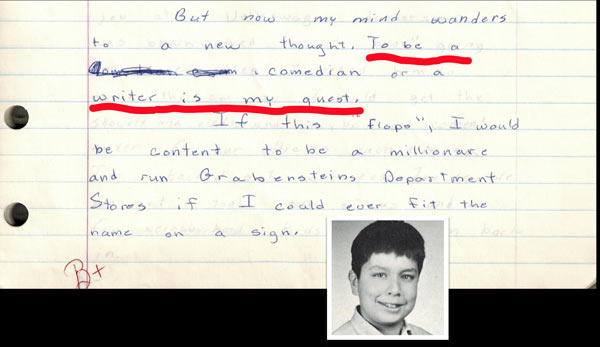 But now my mind wanders
to a new thought. To be a
comedian or a
writer is my quest.
If this "flops", I would
be content to be a millionare
and run Grabensteins Department
Stores if I could ever fit the
name on a sign.
B+